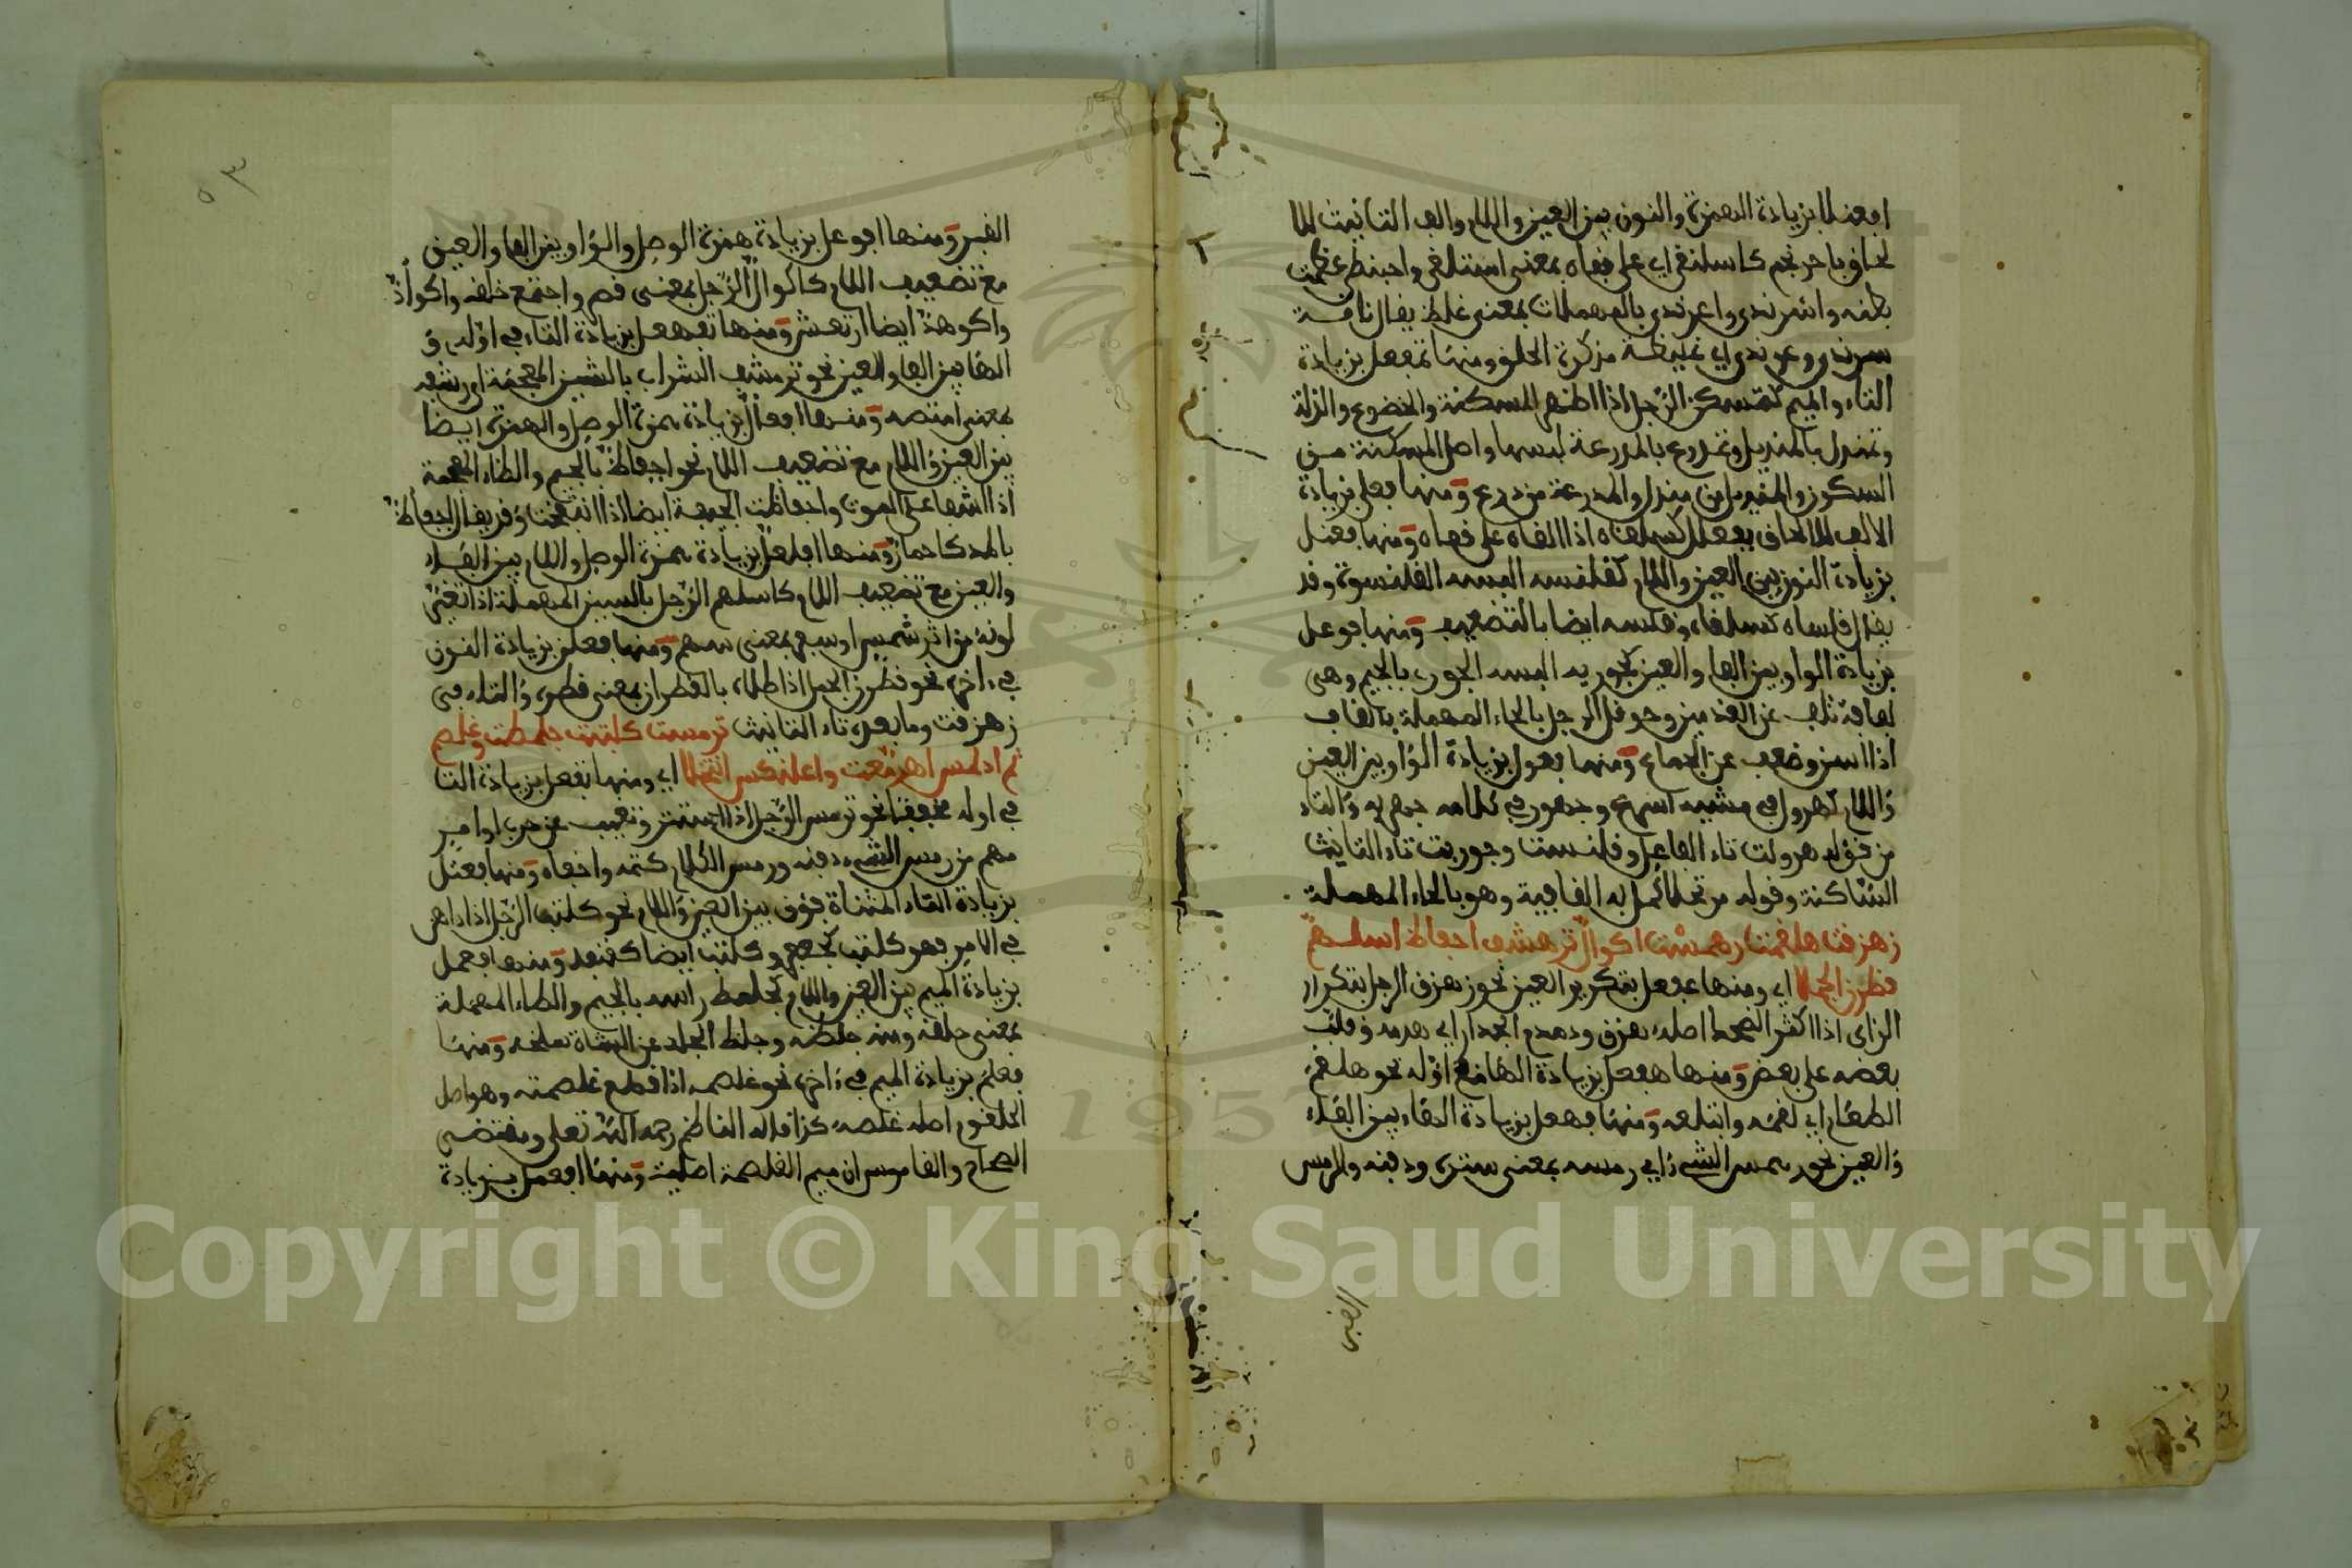 افعنلا بزيادة الهمزة والنون بين العين واللام والف التانيث للا
لحاق باحرنجم كاسلنقى اي على قفاه بمعنى استلقى واحبنطى عظمت
بطنه واسرندى واعرندى بالمهملات بمعنى غلظ يقال ناقة
سرندى وعرندى اي غليظة من كثرة الخلق ومنها تمفعل بزيادة
التاء والميم كتمسكن الرجل اذا اظهر المسكنة والخضوع والذلة
وتمندل بالمنديل وتمدرع بالمدرعة لبسها واصل المسكنة من
السكون والمنديل من مندل والمدرعة من درع ومنها فعلى بزيادة
الالف للالحاق بفعلل كسلقاه اذا القاه على قفاه ومنها فعنل
بزيادة النون بين العين واللام كقلنسه البسه القلنسوة وقد
يقال قلساه كسلقاه وقلسه ايضا بالتضعيف ومنها فوعل
بزيادة الواو بين الفاء والعين كجوربه البسه الجورب بالجيم وهي
لفافة تلف عن القدمين وحوقل الرجل بالحاء المهملة بالقاف
اذا اسن وضعف عن الجماع ومنها فعول بزيادة الواو بين العين
واللام كهرول في مشيه اسرع وجهور في كلامه جهر به والتاء
من قوله هرولت تاء الفاعل وقلنست وجوربت تاء التانيث
الساكنة وقوله مرتحلا كمل به القافية وهو بالحاء المهملة
زهزقت هلقمت رهمست اكوال ترهشف اجفاظ اسلهم
قطرن الجملا اي ومنها عفعل بتكرير العين نحو زهزق الرجل بتكرار
الزاى اذا اكثر الضحك اصله هزق ودهدم الجدار اي هدمه وقلب
بعضه على بعض ومنها هفعل بزيادة الهاء في اوله نحو هلقم
الطعام اي لقمه وابتلعه ومنها فهعل بزيادة الهاء بين الفاء
والعين نحو رهمس الشيء اي رمسه بمعنى ستره ودفنه والرمس
القبر ومنها افوعل بزيادة همزة الوصل والواو بين الفاء والعين
مع تضعيف اللام كاكوال الرجل بمعنى قصر واجتمع خلقه واكوأد
واكوهد ايضا ارتعش ومنها تفهعل بزيادة التاء في اوله و
الهاء بين الفاء والعين نحو ترهشف الشراب بالشين المعجمة اي رشفه
بمعنى امتصه ومنها افعأل بزيادة همزة الوصل والهمزة ايضا
بين العين واللام مع تضعيف اللام نحو اجفاظ بالجيم والظاء المعجمة
اذا اشفا على الموت واجفاظت الجيفة ايضا اذا انتفخت وقد يقال اجفاظ
بالمد كاحمار ومنها افلعل بزيادة همزة الوصل واللام بين الفاء
والعين مع تضعيف اللام كاسلهم الرجل بالسين المهملة اذا تغير
لونه من اثر شمس او سفر بمعنى سهم ومنها فعلن بزيادة النون
في اخره نحو قطرن الجمل اذا طلاه بالقطران بمعنى قطره والتاء في
زهزقت وما بعده تاء التانيث ترمست كلتبت جلمطت وغلصم
ثم ادلمس اهرمعت واعلنكس انتخلا اي ومنها تفعل بزيادة التا
في اوله مخففا نحو ترمس الرجل اذا استتر وتغيب عن حرب او امر
مهم من رمس الشيء دفنه ورمس الكلام كتمه واخفاه ومنها فعتل
بزيادة التاء المثناة فوق بين العين واللام نحو كلتب الرجل اذا داهن
في الامر فهو كلتب كجعفر وكلتب ايضا كقنفد ومنها فعمل
بزيادة الميم بين العين واللام كجلمط راسه بالجيم والطاء المهملة
بمعنى حلقه ومنه جلطه وجلط الجلد عن الشاة سلخه ومنها
فعلم بزيادة الميم في اخره نحو غلصمه اذا قطع غلصمته وهو اصل
الحلقوم اصله غلصه كذا قاله الناظم رحمه الله تعلى ومقتضى
الصحاح والقاموس ان ميم الغلصمة اصلية ومنها افعمل بزيادة
Copyright © King Saud University
1957